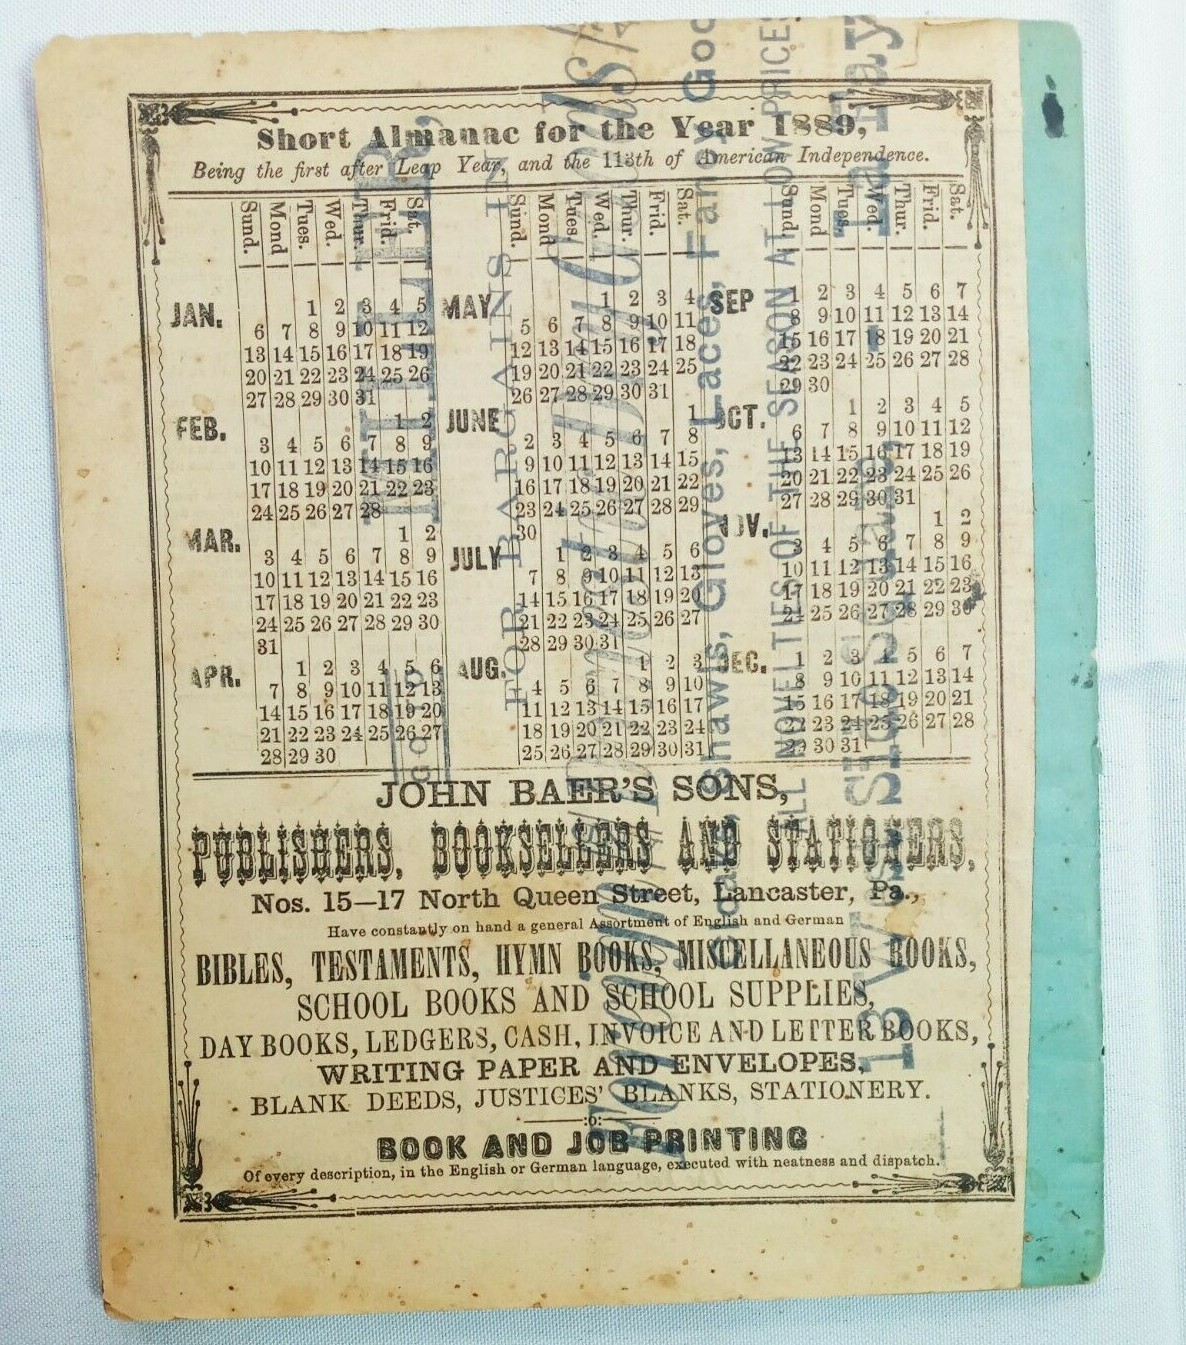 Short Almanac for the Year 1889,
Being the first after Leap Year, and the 113th of American Independence.
Sund. Mond Tues. Wed. Thur. Frid. Sat.
JAN.
1 2 3 4 5
6 7 8 9 10 11 12
13 14 15 16 17 18 19
20 21 22 23 24 25 26
27 28 29 30 31
FEB.
1 2
3 4 5 6 7 8 9
10 11 12 13 14 15 16
17 18 19 20 21 22 23
24 25 26 27 28
MAR.
1 2
3 4 5 6 7 8 9
10 11 12 13 14 15 16
17 18 19 20 21 22 23
24 25 26 27 28 29 30
31
APR.
1 2 3 4 5 6
7 8 9 10 11 12 13
14 15 16 17 18 19 20
21 22 23 24 25 26 27
28 29 30
Sund. Mond Tues. Wed. Thur. Frid. Sat.
MAY
1 2 3 4
5 6 7 8 9 10 11
12 13 14 15 16 17 18
19 20 21 22 23 24 25
26 27 28 29 30 31
JUNE
1
2 3 4 5 6 7 8
9 10 11 12 13 14 15
16 17 18 19 20 21 22
23 24 25 26 27 28 29
30
JULY
1 2 3 4 5 6
7 8 9 10 11 12 13
14 15 16 17 18 19 20
21 22 23 24 25 26 27
28 29 30 31
AUG.
1 2 3
4 5 6 7 8 9 10
11 12 13 14 15 16 17
18 19 20 21 22 23 24
25 26 27 28 29 30 31
Sund. Mond Tues. Wed. Thur. Frid. Sat.
SEP
1 2 3 4 5 6 7
8 9 10 11 12 13 14
15 16 17 18 19 20 21
22 23 24 25 26 27 28
29 30
OCT.
1 2 3 4 5
6 7 8 9 10 11 12
13 14 15 16 17 18 19
20 21 22 23 24 25 26
27 28 29 30 31
NOV.
1 2
3 4 5 6 7 8 9
10 11 12 13 14 15 16
17 18 19 20 21 22 23
24 25 26 27 28 29 30
DEC.
1 2 3 4 5 6 7
8 9 10 11 12 13 14
15 16 17 18 19 20 21
22 23 24 25 26 27 28
29 30 31
JOHN BAER'S SONS,
PUBLISHERS, BOOKSELLERS AND STATIONERS,
Nos. 15—17 North Queen Street, Lancaster, Pa.,
Have constantly on hand a general Assortment of English and German
BIBLES, TESTAMENTS, HYMN BOOKS, MISCELLANEOUS BOOKS,
SCHOOL BOOKS AND SCHOOL SUPPLIES,
DAY BOOKS, LEDGERS, CASH, INVOICE AND LETTER BOOKS,
WRITING PAPER AND ENVELOPES,
BLANK DEEDS, JUSTICES' BLANKS, STATIONERY.
:o:
BOOK AND JOB PRINTING
Of every description, in the English or German language, executed with neatness and dispatch.
MILLER,
FOR BARGAINS IN
Foreign Dry Goods
Shawls, Gloves, Laces, Fancy Goo
ALL NOVELTIES OF THE SEASON AT LOW PRICES